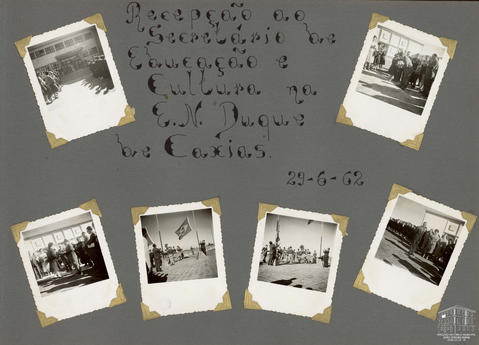 Recepção ao
Secretário de
Educação e
Cultura na
E.N. Duque
de Caxias.
29-6-62